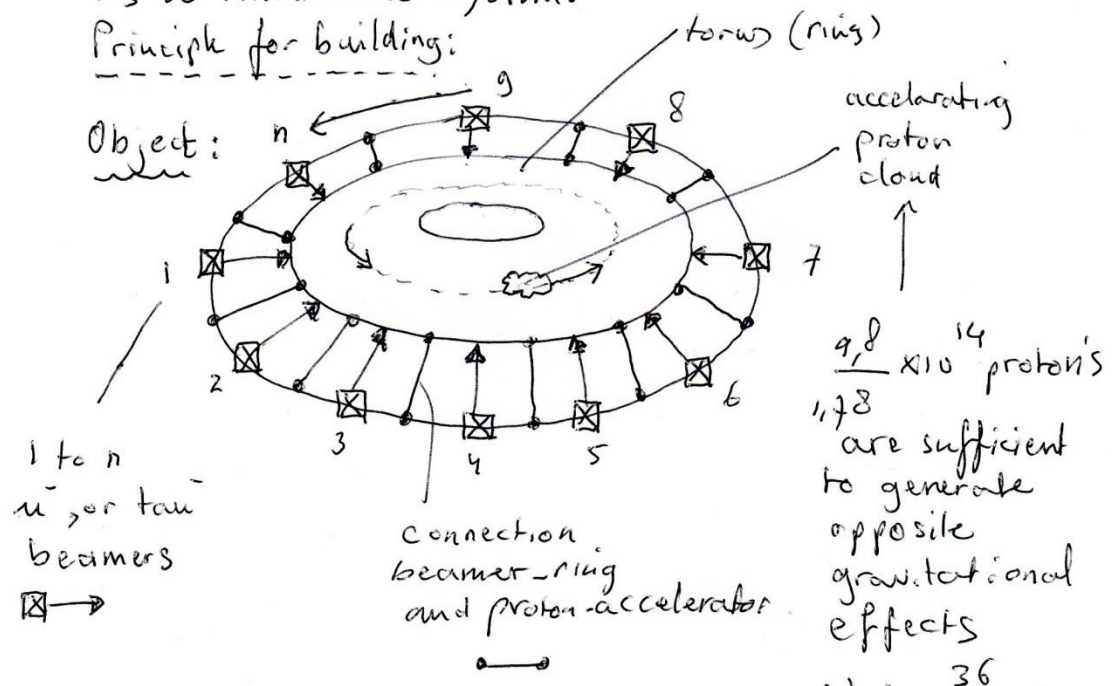 Principle for building:
torus (ring)
accelarating
proton
cloud
Object:
n
9
8
7
6
5
4
3
2
1
1 to n
μ⁻, or tau⁻
beamers
connection
beamer-ring
and proton-accelerator.
9,8
1,78
x10 14 proton's
are sufficient
to generate
opposite
gravitational
effects
36